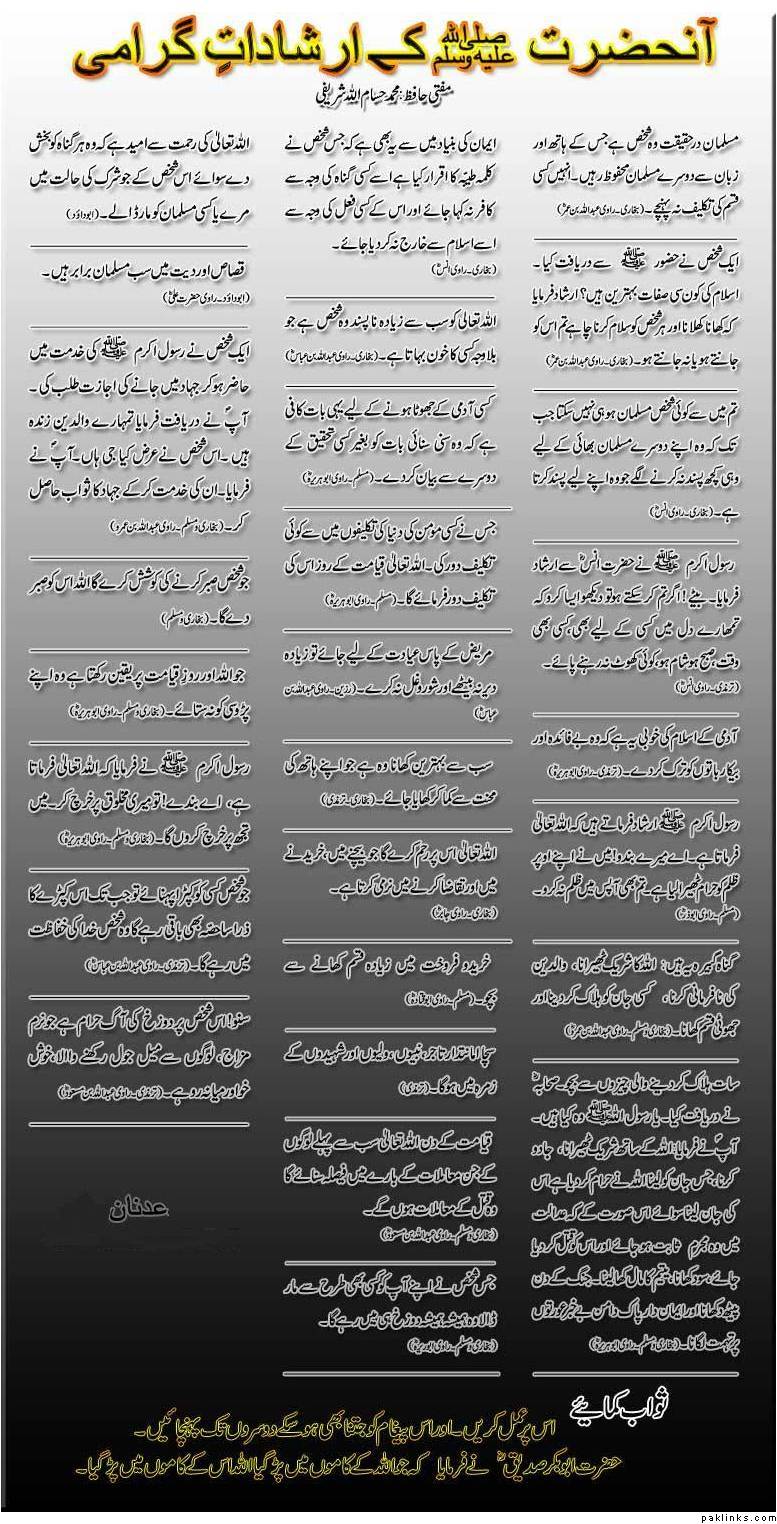 آنحضرت ﷺ کے ارشاداتِ گرامی
مفتی حافظ: محمد حسام اللہ شریفی
مسلمان در حقیقت وہ شخص ہے جس کے ہاتھ اور
زبان سے دوسرے مسلمان محفوظ رہیں۔ انہیں کسی
قسم کی تکلیف نہ پہنچے۔ (بخاری۔ راوی عبداللہ بن عمرؓ)
ایک شخص نے حضور ﷺ سے دریافت کیا۔
اسلام کی کون سی صفات بہترین ہیں؟ ارشاد فرمایا
کہ کھانا کھلانا اور ہر شخص کو سلام کرنا چاہے تم اس کو
جانتے ہو یا نہ جانتے ہو۔ (بخاری۔ راوی عبداللہ بن عمرؓ)
تم میں سے کوئی شخص مسلمان ہو ہی نہیں سکتا جب
تک کہ وہ اپنے دوسرے مسلمان بھائی کے لیے
وہی کچھ پسند نہ کرنے لگے جو وہ اپنے لیے پسند کرتا
ہے۔ (بخاری۔ راوی انسؓ)
رسول اکرم ﷺ نے حضرت انسؓ سے ارشاد
فرمایا۔ بیٹے! اگر تم کر سکتے ہو تو دیکھو ایسا کرو کہ
تمہارے دل میں کسی کے لیے بھی، کسی بھی
وقت، صبح ہو شام ہو، کوئی کھوٹ نہ رہنے پائے۔
(ترمذی۔ راوی انسؓ)
آدمی کے اسلام کی خوبی یہ ہے کہ وہ بے فائدہ اور
بیکار باتوں کو ترک کر دے۔ (ترمذی۔ راوی ابو ہریرہؓ)
رسول اکرم ﷺ ارشاد فرماتے ہیں کہ اللہ تعالیٰ
فرماتا ہے۔ اے میرے بندو! میں نے اپنے اوپر
ظلم کو حرام ٹھہرا لیا ہے، تم بھی آپس میں ظلم نہ کرو۔
(مسلم۔ راوی ابوذرؓ)
گناہ کبیرہ یہ ہیں: اللہ کا شریک ٹھیرانا، والدین
کی نافرمانی کرنا، کسی جان کو ہلاک کر دینا اور
جھوٹی قسم کھانا۔ (بخاری و مسلم۔ راوی عبداللہ بن عمرؓ)
سات ہلاک کر دینے والی چیزوں سے بچو۔ صحابہؓ
نے دریافت کیا۔ یا رسول اللہ ﷺ وہ کیا ہیں۔
آپؐ نے فرمایا: اللہ کے ساتھ شریک ٹھیرانا، جادو
کرنا، جس جان کو لینا اللہ نے حرام کر دیا ہے اس
کی جان لینا سوائے اس صورت کے کہ عدالت
میں وہ مجرم ثابت ہو جائے اور اس کو قتل کر دیا
جائے، سود کھانا، یتیم کا مال کھا لینا۔ جنگ کے دن
پیٹھ دکھانا اور ایمان دار پاک دامن بے خبر عورتوں
پر تہمت لگانا۔ (بخاری و مسلم۔ راوی ابو ہریرہؓ)
ایمان کی بنیاد میں سے یہ بھی ہے کہ جس شخص نے
کلمہ طیبہ کا اقرار کیا ہے اسے کسی گناہ کی وجہ سے
کافر نہ کہا جائے اور اس کے کسی فعل کی وجہ سے
اسے اسلام سے خارج نہ کر دیا جائے۔
(بخاری۔ راوی انسؓ)
اللہ تعالیٰ کو سب سے زیادہ ناپسند وہ شخص ہے جو
بلا وجہ کسی کا خون بہاتا ہے۔ (بخاری۔ راوی عبداللہ بن عباسؓ)
کسی آدمی کے جھوٹا ہونے کے لیے یہی بات کافی
ہے کہ وہ سنی سنائی بات کو بغیر کسی تحقیق کے
دوسرے سے بیان کر دے۔ (مسلم۔ راوی ابو ہریرہؓ)
جس نے کسی مؤمن کی دنیا کی تکلیفوں میں سے کوئی
تکلیف دور کی۔ اللہ تعالیٰ قیامت کے روز اس کی
تکلیف دور فرمائے گا۔ (مسلم۔ راوی ابو ہریرہؓ)
مریض کے پاس عیادت کے لیے جائے تو زیادہ
دیر نہ بیٹھے اور شور و غل نہ کرے۔ (رزین۔ راوی عبداللہ بن
عباسؓ)
سب سے بہترین کھانا وہ ہے جو اپنے ہاتھ کی
محنت سے کما کر کھایا جائے۔ (بخاری۔ ترمذی)
اللہ تعالیٰ اس پر رحم کرے گا جو بیچنے میں خریدنے
میں اور تقاضا کرنے میں نرمی کرتا ہے۔
(بخاری۔ راوی جابرؓ)
خرید و فروخت میں زیادہ قسم کھانے سے
بچو۔ (مسلم۔ راوی ابو قتادہؓ)
سچا امانتدار تاجر، نبیوں، ولیوں اور شہیدوں کے
زمرہ میں ہوگا۔ (ترمذی)
قیامت کے دن اللہ تعالیٰ سب سے پہلے لوگوں
کے جن معاملات کے بارے میں فیصلہ سنائے گا
وہ قتل کے معاملات ہوں گے۔
(بخاری و مسلم۔ راوی عبداللہ بن مسعودؓ)
جس شخص نے اپنے آپ کو کسی بھی طرح سے مار
ڈالا وہ ہمیشہ ہمیشہ دوزخ ہی میں رہے گا۔
(بخاری و مسلم۔ راوی ابو ہریرہؓ)
اللہ تعالیٰ کی رحمت سے امید ہے کہ وہ ہر گناہ کو بخش
دے سوائے اس شخص کے جو شرک کی حالت میں
مرے یا کسی مسلمان کو مار ڈالے۔ (ابو داؤد)
قصاص اور دیت میں سب مسلمان برابر ہیں۔
(ابو داؤد۔ راوی حضرت علیؓ)
ایک شخص نے رسول اکرم ﷺ کی خدمت میں
حاضر ہو کر جہاد میں جانے کی اجازت طلب کی۔
آپؐ نے دریافت فرمایا تمہارے والدین زندہ
ہیں۔ اس شخص نے عرض کیا جی ہاں۔ آپؐ نے
فرمایا۔ ان کی خدمت کر کے جہاد کا ثواب حاصل
کر۔ (بخاری و مسلم۔ راوی عبداللہ بن عمرو)
جو شخص صبر کرنے کی کوشش کرے گا اللہ اس کو صبر
دے گا۔ (بخاری و مسلم)
جو اللہ اور روزِ قیامت پر یقین رکھتا ہے وہ اپنے
پڑوسی کو نہ ستائے۔ (بخاری و مسلم۔ راوی ابو ہریرہؓ)
رسول اکرم ﷺ نے فرمایا کہ اللہ تعالیٰ فرماتا
ہے، اے بندے! تو میری مخلوق پر خرچ کر۔ میں
تجھ پر خرچ کروں گا۔ (بخاری و مسلم۔ راوی ابو ہریرہؓ)
جو شخص کسی کو کپڑا پہنائے تو جب تک اس کپڑے کا
ذرا سا حصہ بھی باقی رہے گا وہ شخص خدا کی حفاظت
میں رہے گا۔ (ترمذی۔ راوی عبداللہ ابن عباسؓ)
سنو! اس شخص پر دوزخ کی آگ حرام ہے جو نرم
مزاج، لوگوں سے میل جول رکھنے والا، خوش
خو اور میانہ رو ہے۔ (ترمذی۔ راوی عبداللہ ابن مسعودؓ)
عدنان
ثواب کمایئے
اس پر عمل کریں۔ اور اس پیغام کو جتنا بھی ہو سکے دوسروں تک پہنچائیں۔
حضرت ابو بکر صدیقؓ نے فرمایا کہ جو اللہ کے کاموں میں پڑ گیا اللہ اس کے کاموں میں پڑ گیا۔
paklinks.com